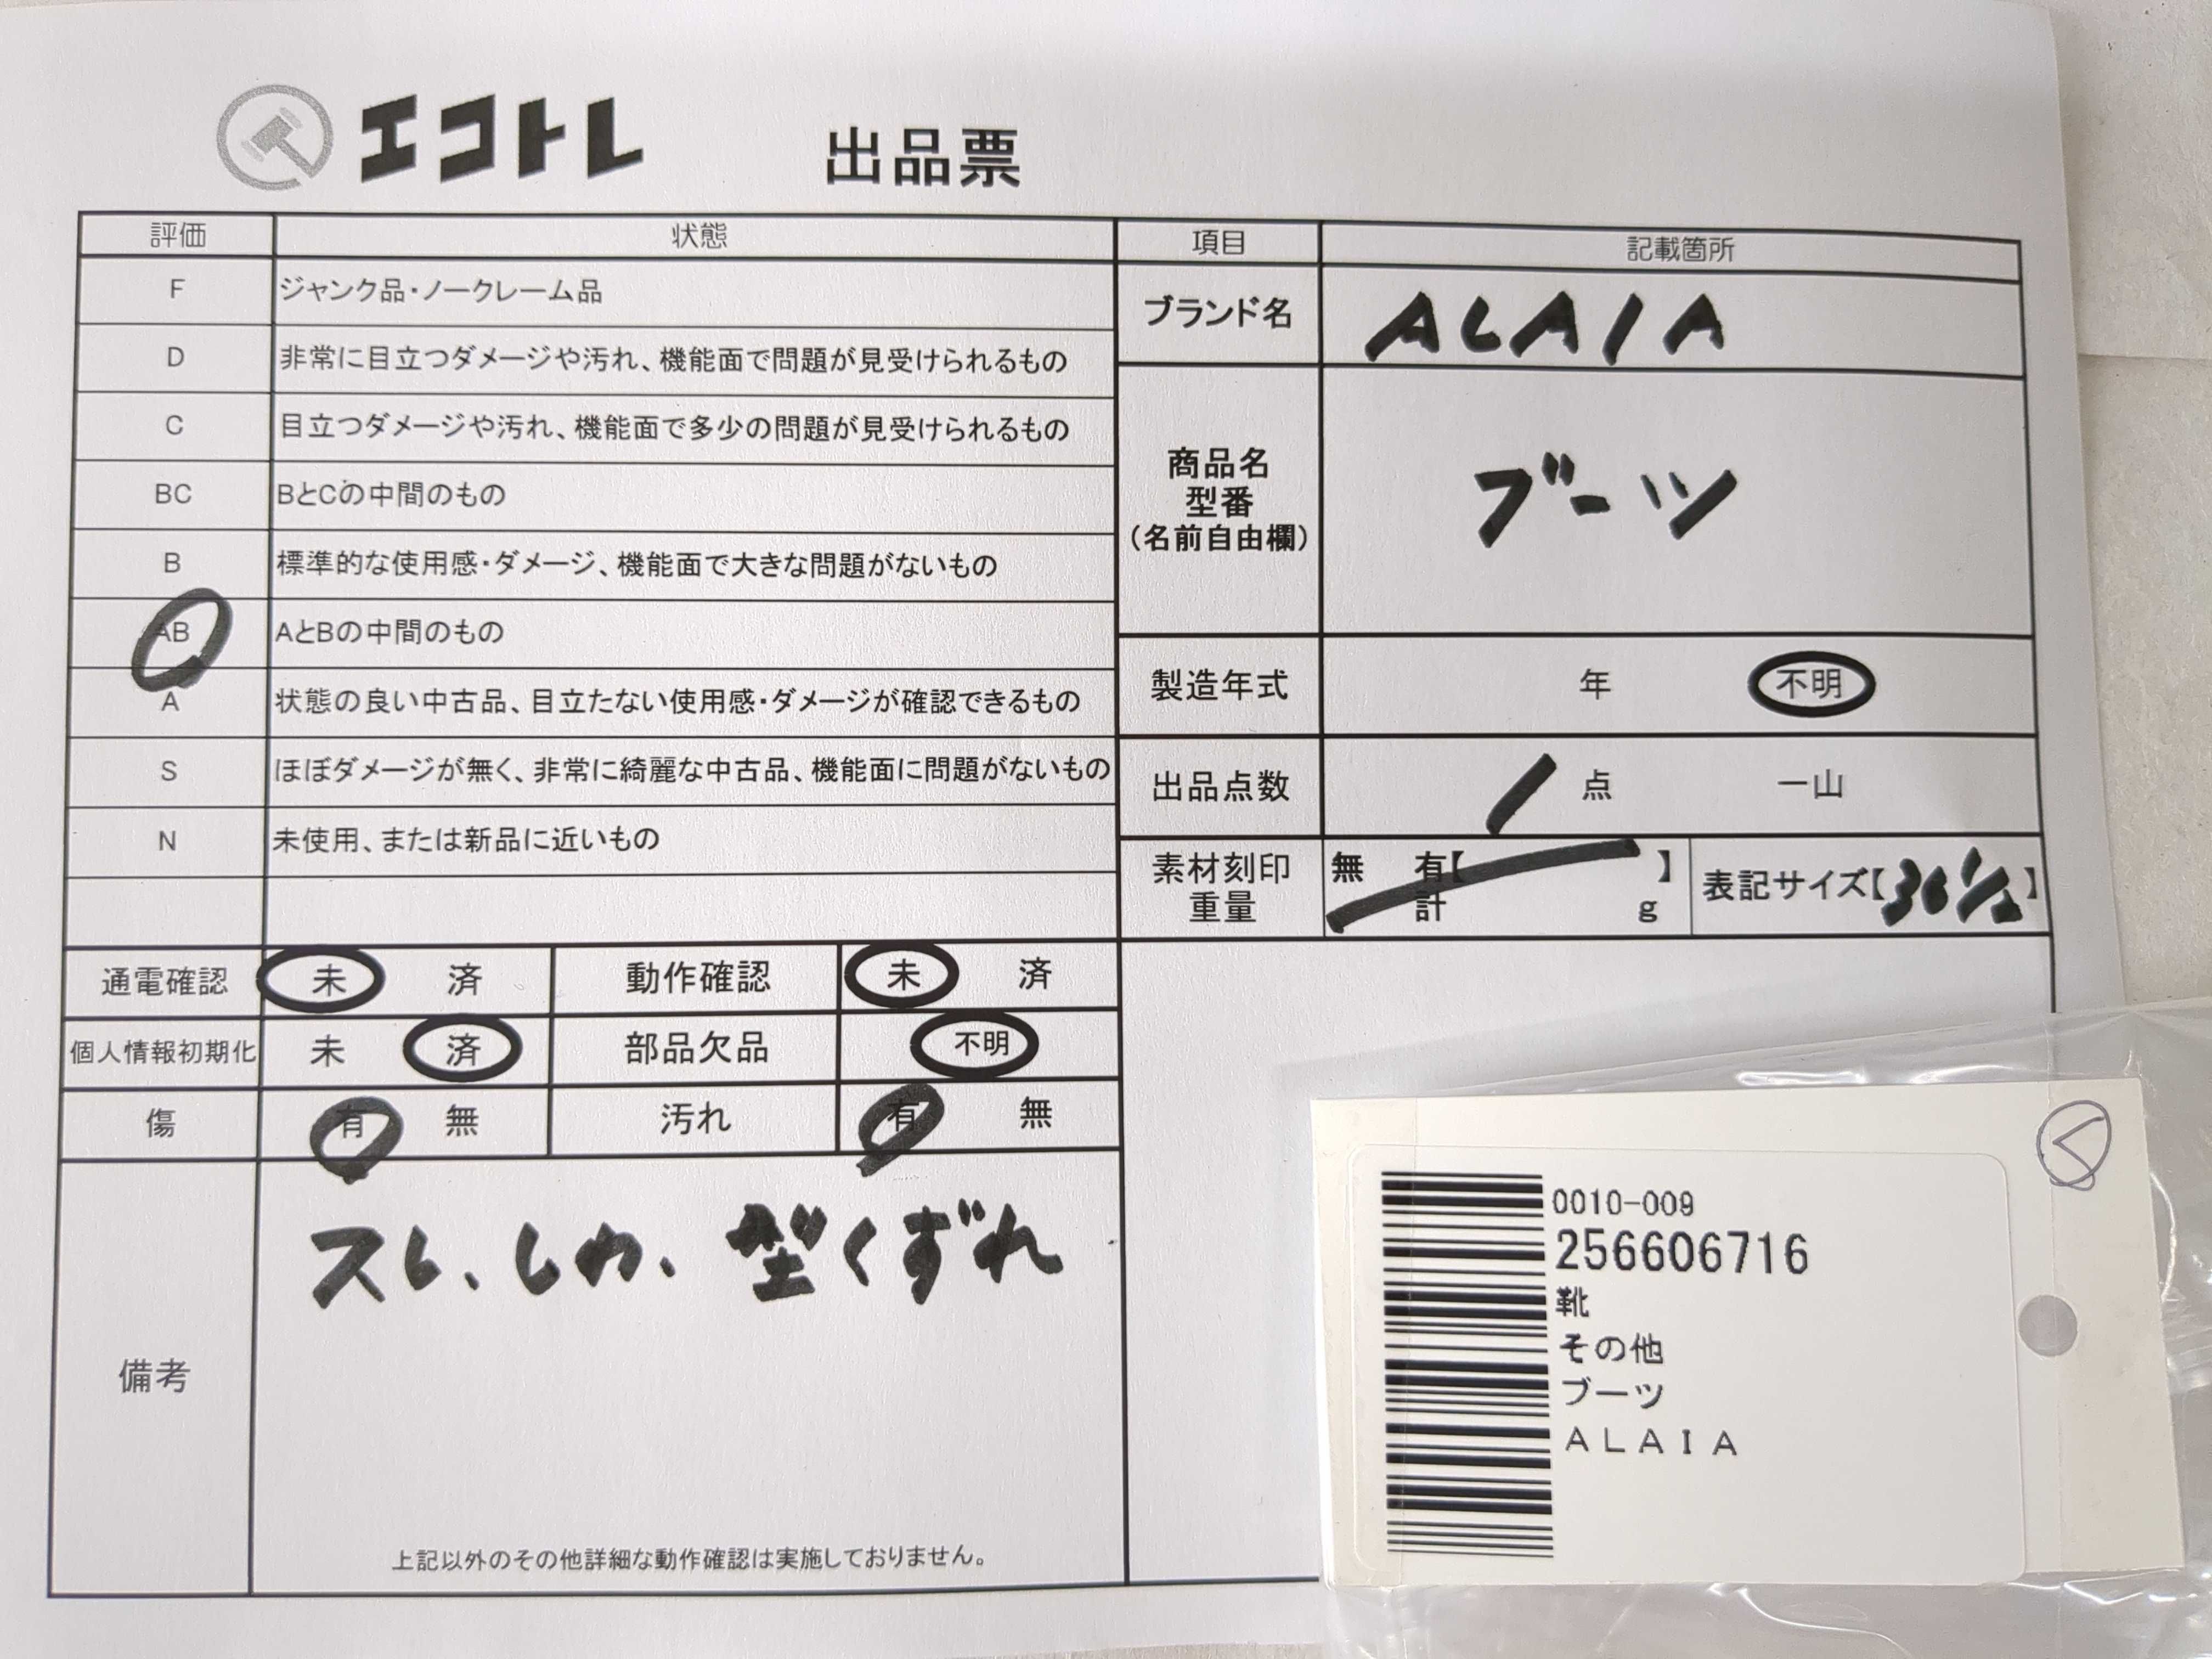 エコトレ 出品票
評価 状態
F ジャンク品・ノークレーム品
D 非常に目立つダメージや汚れ、機能面で問題が見受けられるもの
C 目立つダメージや汚れ、機能面で多少の問題が見受けられるもの
BC BとCの中間のもの
B 標準的な使用感・ダメージ、機能面で大きな問題がないもの
AB AとBの中間のもの
A 状態の良い中古品、目立たない使用感・ダメージが確認できるもの
S ほぼダメージが無く、非常に綺麗な中古品、機能面に問題がないもの
N 未使用、または新品に近いもの
項目 記載箇所
ブランド名 ALAIA
商品名
型番
(名前自由欄)
ブーツ
製造年式 年 不明
出品点数 1 点 一山
素材刻印 無 有【 】
重量 計 g
表記サイズ【36 1/2】
通電確認 未 済 動作確認 未 済
個人情報初期化 未 済 部品欠品 不明
傷 有 無 汚れ 有 無
備考
スレ、しわ、型くずれ
上記以外のその他詳細な動作確認は実施しておりません。
0010-009
256606716
靴
その他
ブーツ
ALAIA